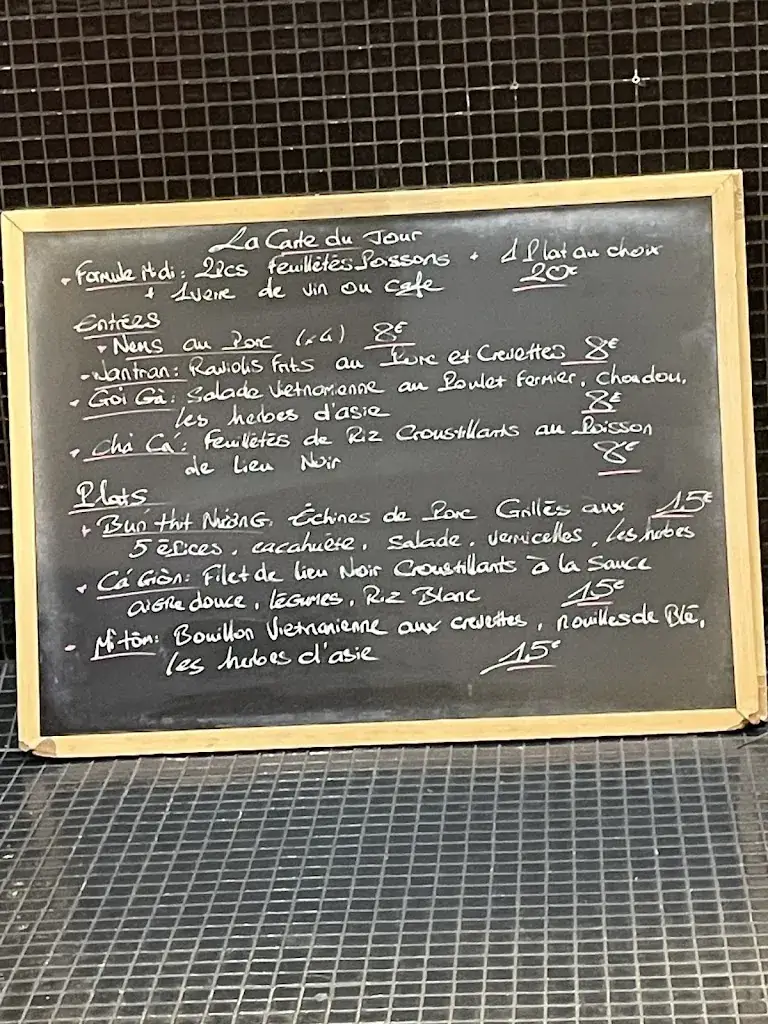 La Carte du Jour
- Formule Midi: 2Pcs feuilletés Poissons + 1 Plat au choix
+ 1 verre de vin ou cafe 20€
Entrées
- Nems au Porc (x4) 8€
- Wantran: Raviolis frits au Porc et Crevettes 8€
- Goi Gà: Salade Vietnamienne au Poulet Fermier, Choudou,
les herbes d'asie 8€
- Chà Cá: Feuilletés de Riz Croustillants au Poisson
de Lieu Noir 8€
Plats
- Bún thit Nướng, Échines de Porc Grillés aux 15€
5 épices, cacahuète, Salade, vermicelles, les herbes
- Cá Giòn: Filet de lieu Noir Croustillants à la Sauce
aigre douce, légumes, Riz Blanc 15€
- Mì tôm: Bouillon Vietnamienne aux crevettes, nouilles de Blé,
les herbes d'asie 15€